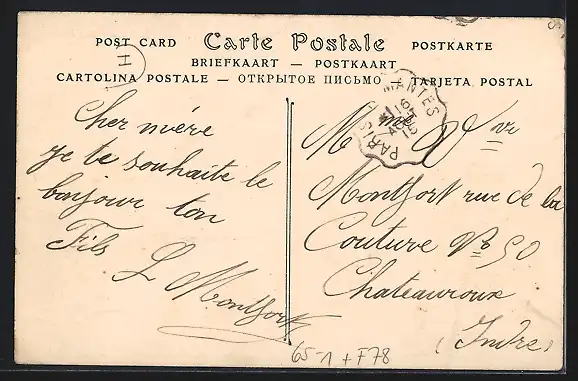 POST CARD Carte Postale POSTKARTE
BRIEFKAART — POSTKAART
CARTOLINA POSTALE — ОТКРЫТОЕ ПИСЬМО — TARJETA POSTAL
H
MANTES
PARIS
Cher mère
je te souhaite le
bonjour ton
Fils
L Montfort
Mme Vve
Montfort rue de la
Couture No 50
Chateauroux
(Indre)
65-1 + F78